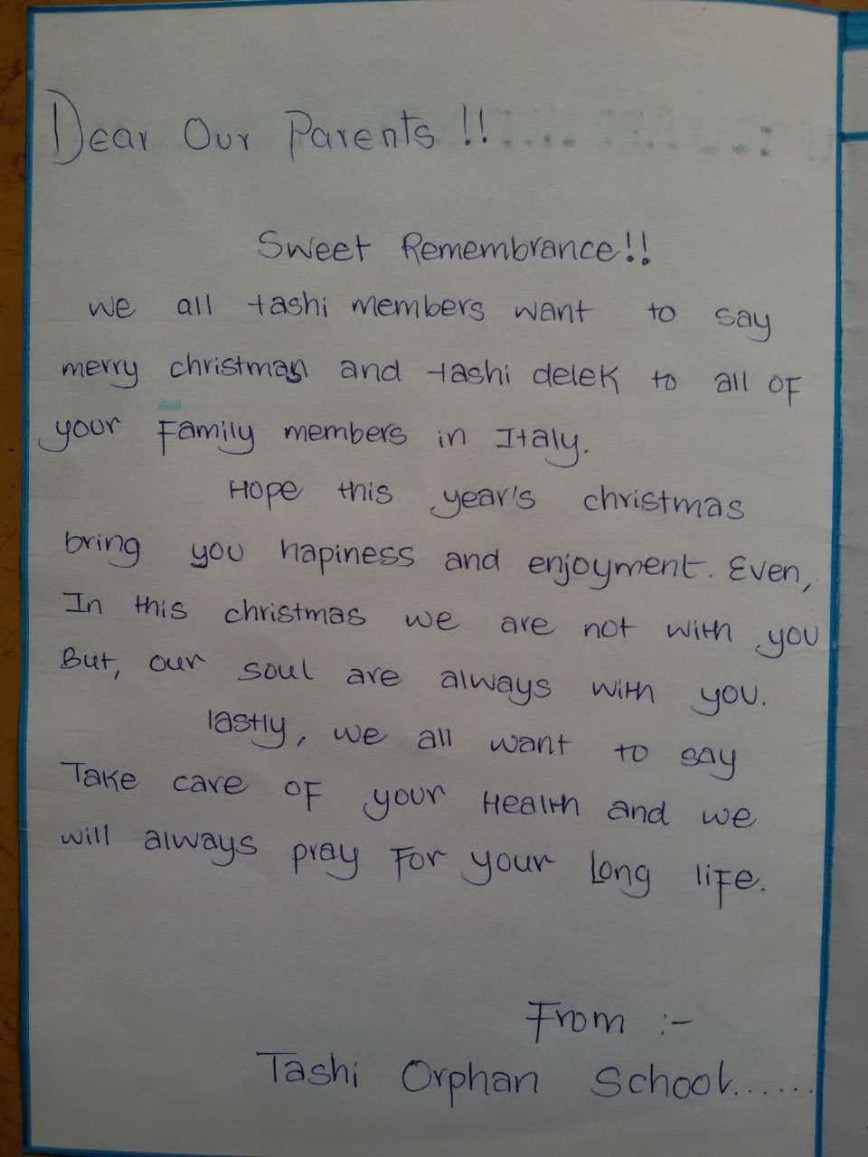 Dear Our Parents !!
Sweet Remembrance!!
We all tashi members want to say
merry christmas and tashi delek to all of
your Family members in Italy.
Hope this year's christmas
bring you hapiness and enjoyment. Even,
In this christmas we are not with you
But, our soul are always with you.
lastly, we all want to say
Take care of your Health and we
will always pray For your Long life.
From :-
Tashi Orphan School......